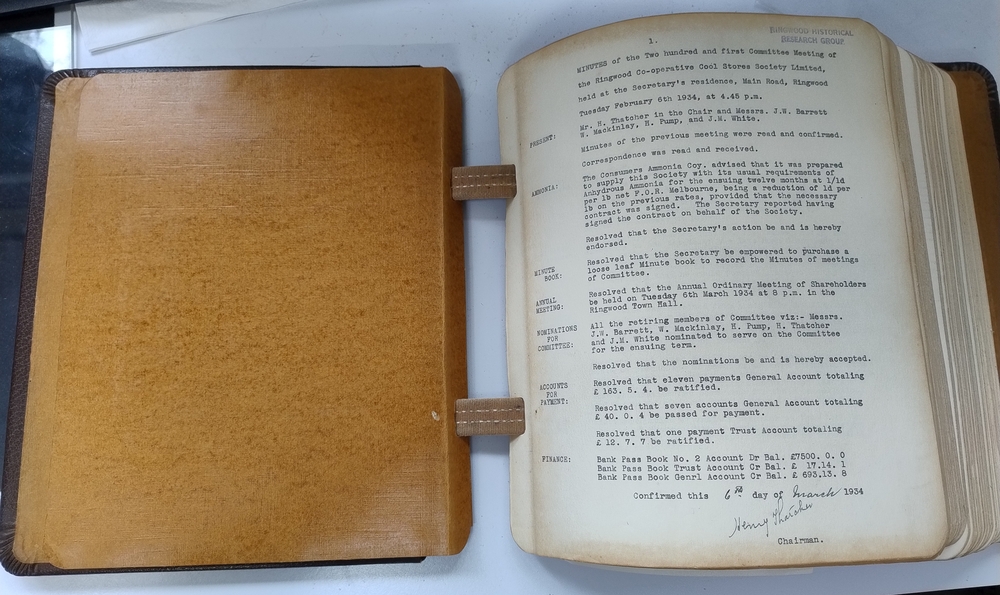 1.
RINGWOOD HISTORICAL
RESEARCH GROUP
MINUTES of the Two hundred and first Committee Meeting of
the Ringwood Co-operative Cool Stores Society Limited,
held at the Secretary's residence, Main Road, Ringwood
Tuesday February 6th 1934, at 4.45 p.m.
PRESENT: Mr. H. Thatcher in the Chair and Messrs. J.W. Barrett
W. Mackinlay, H. Pump, and J.M. White.
Minutes of the previous meeting were read and confirmed.
Correspondence was read and received.
AMMONIA: The Consumers Ammonia Coy. advised that it was prepared
to supply this Society with its usual requirements of
Anhydrous Ammonia for the ensuing twelve months at 1/1d
per lb net F.O.R. Melbourne, being a reduction of 1d per
lb on the previous rates, provided that the necessary
contract was signed. The Secretary reported having
signed the contract on behalf of the Society.
Resolved that the Secretary's action be and is hereby
endorsed.
MINUTE BOOK: Resolved that the Secretary be empowered to purchase a
loose leaf Minute book to record the Minutes of meetings
of Committee.
ANNUAL MEETING: Resolved that the Annual Ordinary Meeting of Shareholders
be held on Tuesday 6th March 1934 at 8 p.m. in the
Ringwood Town Hall.
NOMINATIONS FOR COMMITTEE: All the retiring members of Committee viz:- Messrs.
J.W. Barrett, W. Mackinlay, H. Pump, H. Thatcher
and J.M. White nominated to serve on the Committee
for the ensuing term.
Resolved that the nominations be and is hereby accepted.
ACCOUNTS FOR PAYMENT: Resolved that eleven payments General Account totaling
£ 163. 5. 4. be ratified.
Resolved that seven accounts General Account totaling
£ 40. 0. 4 be passed for payment.
Resolved that one payment Trust Account totaling
£ 12. 7. 7 be ratified.
FINANCE: Bank Pass Book No. 2 Account Dr Bal. £7500. 0. 0
Bank Pass Book Trust Account Cr Bal. £ 17.14. 1
Bank Pass Book Genrl Account Cr Bal. £ 693.13. 8
Confirmed this 6th day of March 1934
Henry Thatcher
Chairman.